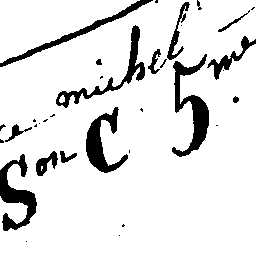 ce michel
Son C. 5me.